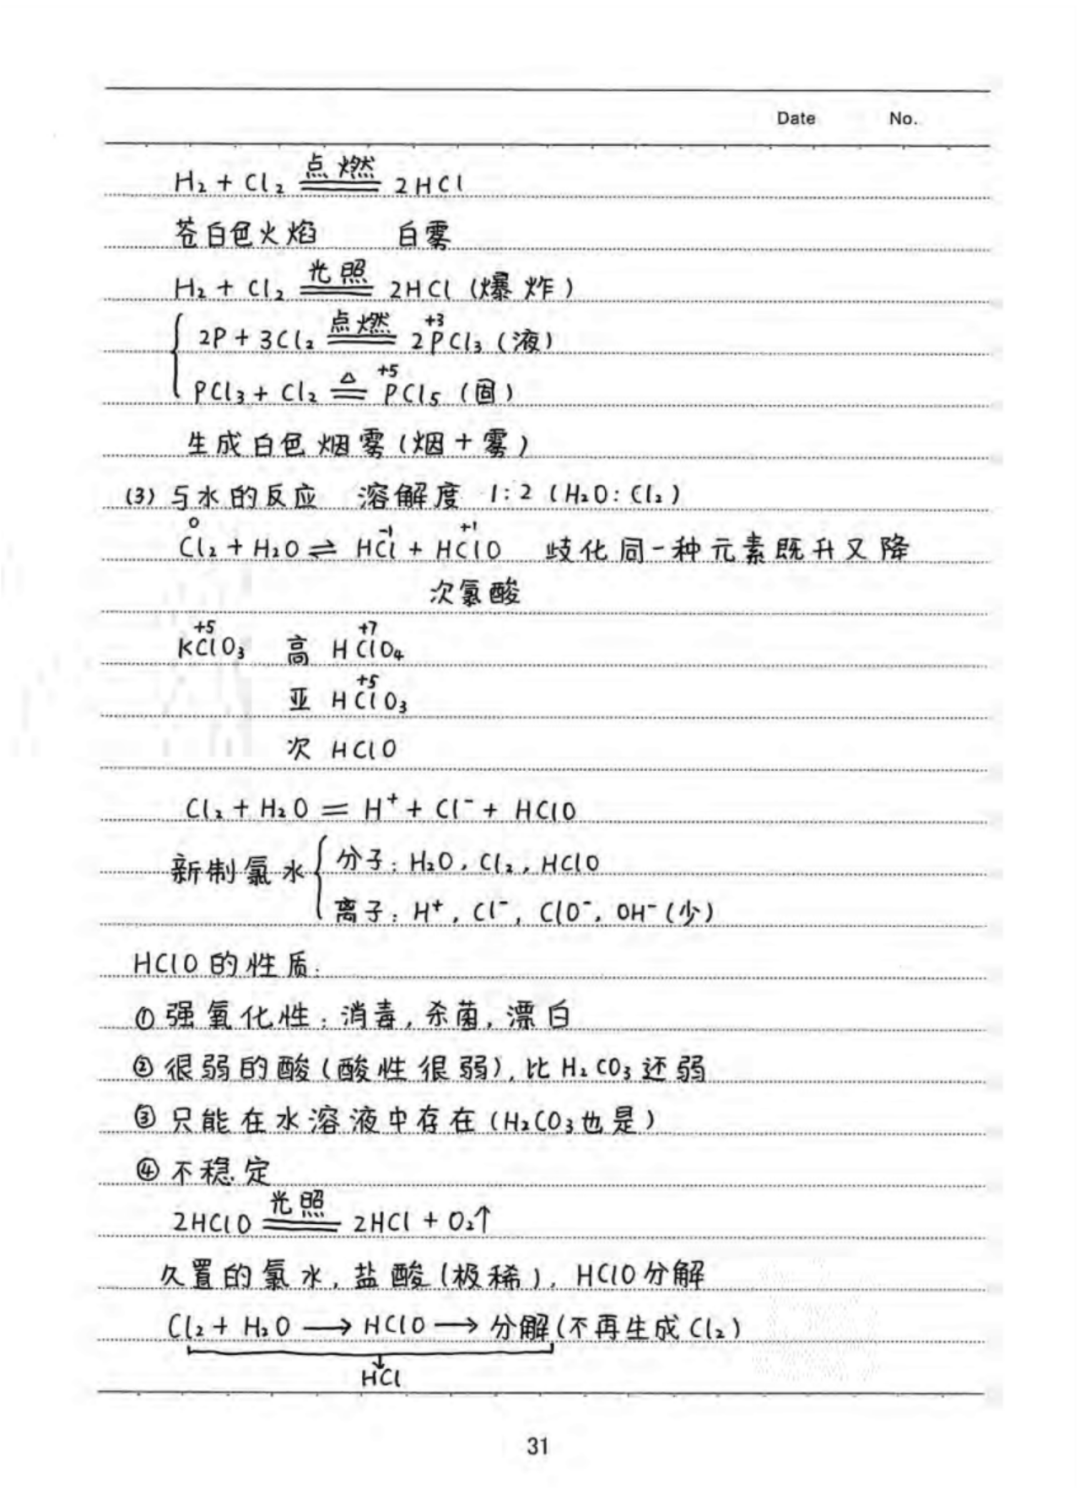 Date No.
H₂ + Cl₂ 点燃═══ 2HCl
苍白色火焰 白雾
H₂ + Cl₂ 光照═══ 2HCl (爆炸)
2P + 3Cl₂ 点燃═══ 2P⁺³Cl₃ (液)
PCl₃ + Cl₂ △═══ P⁺⁵Cl₅ (固)
生成白色烟雾 (烟+雾)
(3) 与水的反应 溶解度 1:2 (H₂O:Cl₂)
Cl₂⁰ + H₂O ⇌ HCl⁻¹ + HCl⁺¹O 歧化同一种元素既升又降
次氯酸
KCl⁺⁵O₃ 高 HCl⁺⁷O₄
亚 HCl⁺⁵O₃
次 HClO
Cl₂ + H₂O = H⁺ + Cl⁻ + HClO
新制氯水 { 分子: H₂O, Cl₂, HClO
离子: H⁺, Cl⁻, ClO⁻, OH⁻ (少)
HClO的性质:
①强氧化性:消毒,杀菌,漂白
②很弱的酸(酸性很弱),比H₂CO₃还弱
③只能在水溶液中存在(H₂CO₃也是)
④不稳定
2HClO 光照═══ 2HCl + O₂↑
久置的氯水,盐酸(极稀),HClO分解
Cl₂ + H₂O → HClO → 分解(不再生成Cl₂)
↓
HCl
31